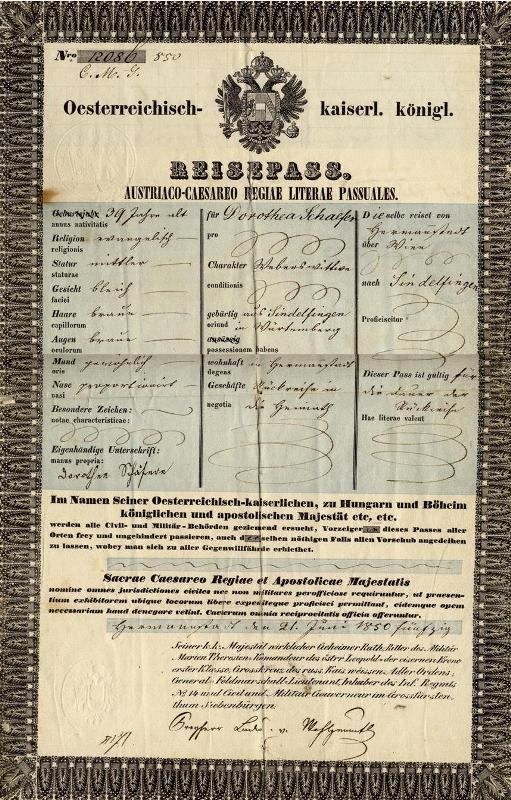 Nro 12086 850
C. M. G.
Oesterreichisch- kaiserl. königl.
REISEPASS.
AUSTRIACO-CAESAREO REGIAE LITERAE PASSUALES.
Geburtsjahr 39 Jahre alt
annus nativitatis
Religion evangelisch
religionis
Statur mittler
staturae
Gesicht bleich
faciei
Haare braune
capillorum
Augen braune
oculorum
Mund gewöhnlich
oris
Nase proportionirt
nasi
Besondere Zeichen:
notae characteristicae:
Eigenhändige Unterschrift:
manus propria:
Dorothee Schäfere
für Dorothea Schaefer
pro
Charakter Webers Wittwe
conditionis
gebürtig aus Sindelfingen
oriund in Würtemberg
ansässig
possessionem habens
wohnhaft in Hermanstadt
degens
Geschäfte Rückreise in
negotia die Heimath
Dieselbe reiset von
Hermanstadt
über Wien
nach Sindelfingen
Proficiscitur
Dieser Pass ist gültig für
die dauer der
Rückreise
Hae literae valent
Im Namen Seiner Oesterreichisch-kaiserlichen, zu Hungarn und Böheim
königlichen und apostolischen Majestät etc. etc.
werden alle Civil- und Militär-Behörden geziemend ersucht, Vorzeigerin dieses Passes aller
Orten frey und ungehindert passieren, auch derselben nöthigen Falls allen Vorschub angedeihen
zu lassen, wobey man sich zu aller Gegenwillfährde erbiethet.
Sacrae Caesareo Regiae et Apostolicae Majestatis
nomine omnes Jurisdictiones civiles nec non militares perofficiose requiruntur, ut praesen-
tium exhibitorem ubique locorum libere expediteque proficisci permittant, eidemque opem
necessariam haud denegare velint. Caeterum omnia reciprocitatis officia offeruntur.
Hermanstadt den 21. Juni 1850 fünfzig
Seiner k. k. Majestät wirklicher Geheimer Rath, Ritter des Militär
Marien Theresien-, Komandeur des östr. Leopold-, der eisernen Krone
erster Klasse, Gross Kreuz des russ. Kais. weissen Adler Ordens,
General-, Feldmarschall-Lieutenant, Inhaber des Inf. Regmts
No 14 und Civil und Militär Gouverneur im Grossfürsten-
thum Siebenbürgen:
Freyherr Ludw. v. Wohlgemuth